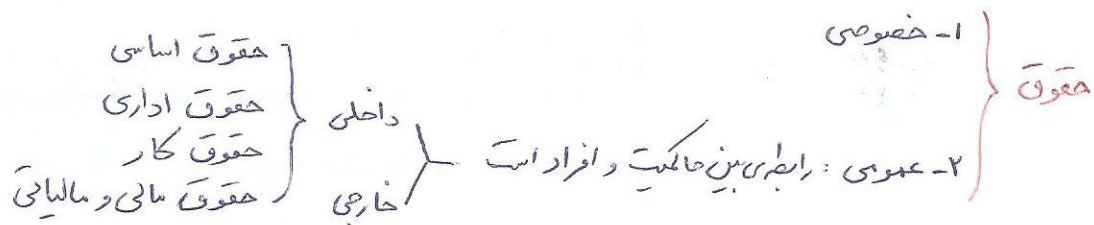 حقوق
۱- خصوصی
۲- عمومی : رابطه‌ی بین حاکمیت و افراد است
داخلی
خارجی
حقوق اساسی
حقوق اداری
حقوق کار
حقوق مالی و مالیاتی